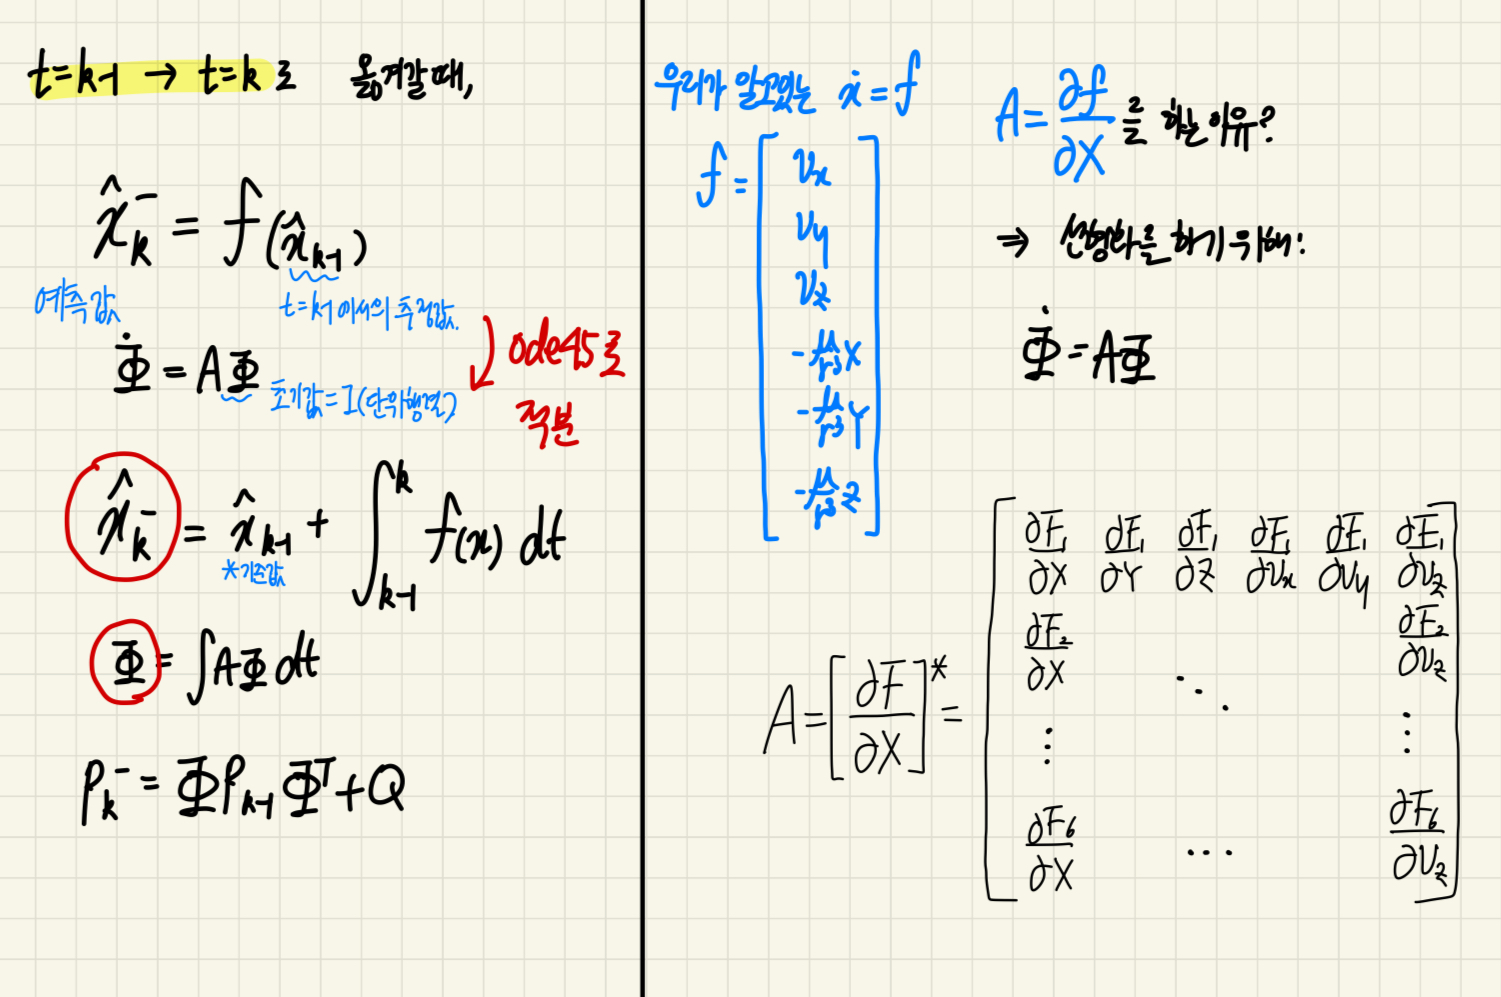 t=k-1 → t=k로 옮겨갈때,
x̂ₖ⁻ = f(x̂ₖ₋₁)
예측값
t=k-1에서의 추정값.
Φ̇ = AΦ
초기값=I(단위행렬)
ode45로
적분
x̂ₖ⁻ = x̂ₖ₋₁ + ∫ₖ₋₁ᵏ f(x) dt
*기존값
Φ = ∫AΦdt
Pₖ⁻ = ΦPₖ₋₁Φᵀ+Q
우리가 알고있는 ẋ = f
f = [vx
vy
vz
-μ/r³ X
-μ/r³ Y
-μ/r³ Z]
A = ∂f/∂X 를 하는 이유?
⇒ 선형화를 하기 위해!
Φ̇ = AΦ
A = [∂F/∂X]* =
[∂F₁/∂X ∂F₁/∂Y ∂F₁/∂Z ∂F₁/∂vx ∂F₁/∂vy ∂F₁/∂vz
∂F₂/∂X ⋱ ∂F₂/∂vz
⋮ ⋮
∂F₆/∂X ⋯ ∂F₆/∂vz]